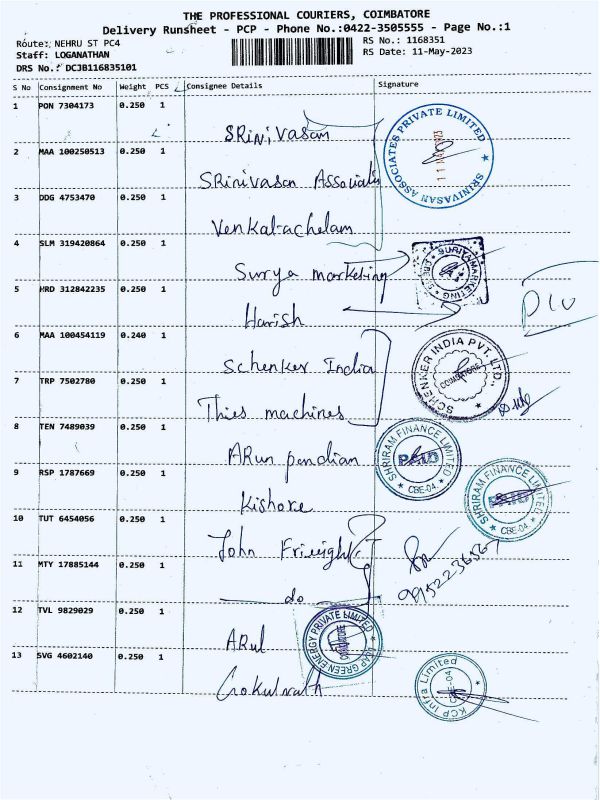 THE PROFESSIONAL COURIERS, COIMBATORE
Delivery Runsheet - PCP - Phone No.:0422-3505555 - Page No.:1
Route: NEHRU ST PC4
RS No.: 1168351
Staff: LOGANATHAN
RS Date: 11-May-2023
DRS No.: DCJB116835101
S No Consignment No Weight PCS Consignee Details Signature
1 PON 7304173 0.250 1 Srinivasan
SRINIVASAN ASSOCIATES PRIVATE LIMITED
2 MAA 100250513 0.250 1 Srinivasan Associates
3 DDG 4753470 0.250 1 Venkatachelam
4 SLM 319420864 0.250 1 Surya marketing
SURYA MARKETING
5 HRD 312842235 0.250 1 Harish
6 MAA 100454119 0.240 1 Schenker India
SCHENKER INDIA PVT. LTD.,
COIMBATORE
7 TRP 7502780 0.250 1 Thies machines
8 TEN 7489039 0.250 1 ARun pandian
SHRIRAM FINANCE LIMITED
PAID
CBE-04.
9 RSP 1787669 0.250 1 Kishore
SHRIRAM FINANCE LIMITED.
CBE-04.
10 TUT 6454056 0.250 1 John
11 MTY 17885144 0.250 1 do
12 TVL 9829029 0.250 1 ARul
GREEN ENERGY PRIVATE LIMITED
13 SVG 4602140 0.250 1 Gokulnath
KCP Infra Limited
CBE-04